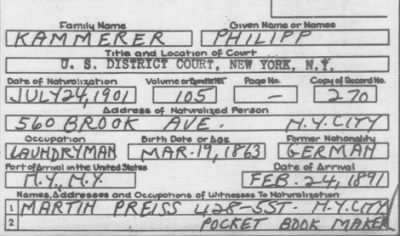 Family Name Given Name or Names
KAMMERER PHILIPP
Title and Location of Court
U. S. DISTRICT COURT, NEW YORK, N.Y.
Date of Naturalization Volume or Bundle No. Page No. Copy of Record No.
JULY 24, 1901 105 — 270
Address of Naturalized Person
560 BROOK AVE. N.Y. CITY
Occupation Birth Date or Age Former Nationality
LAUNDRYMAN MAR. 19, 1863 GERMAN
Port of Arrival in the United States Date of Arrival
N.Y., N.Y. FEB. 24, 1891
Names, Addresses and Occupations of Witnesses To Naturalization
1 MARTIN PREISS 428-5ST. N.Y. CITY
2 POCKET BOOK MAKER